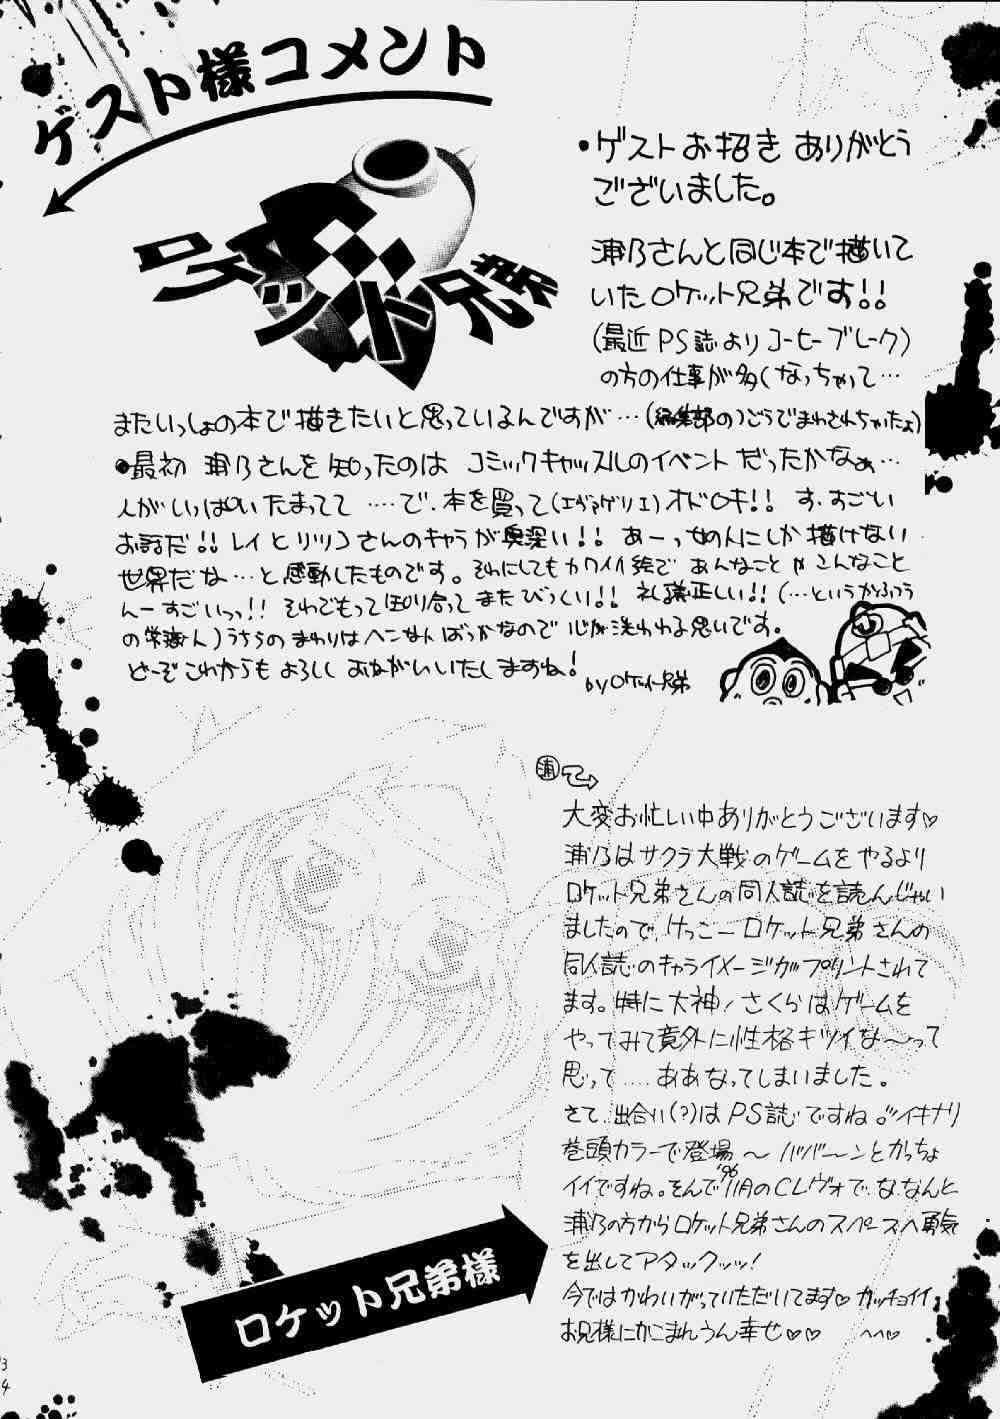 ゲスト様コメント
ロケット兄弟
・ゲストお招き ありがとう
ございました。
浦乃さんと同じ本で描いて
いたロケット兄弟です!!
(最近PS誌よりコーヒーブレーク)
の方の仕事が多くなっちゃって…
またいっしょの本で描きたいと思っているんですが…(編集部のつごうでまわされちゃいたよ)
・最初 浦乃さんを知ったのは コミックキャッスルのイベントだったかなぁ…
人がいっぱいたまってて ……で、本を買って(エヴァゲリエ)オドロキ!! す、すごい
お話だ!! レイとリツコさんのキャラが奥深い!! あーっ女の人にしか描けない
世界だな…と感動したものです。それにしてもカワイイ絵で あんなことやこんなこと
んーすごいっっ!! それでもって知り合って またびっくり!! 礼儀正しい!! (…というかふつう
の常識人)うちらのまわりはヘンな人ばっかなので 心が洗われる思いです。
どーぞこれからも よろしく おねがいいたしますね!
byロケット兄弟
浦
大変お忙しい中ありがとうございます♡
浦乃はサクラ大戦のゲームをやるより
ロケット兄弟さんの同人誌を読んじゃい
ましたので、けっこーロケット兄弟さんの
同人誌のキャライメージがプリントされて
ます。特に大神!さくらはゲームを
やってみて意外に性格キツイな〜って
思って……ああなってしまいました。
さて、出合い(?)はPS誌ですね。イキナリ
巻頭カラーで登場〜ババーンとかっちょ
イイですね。そんで'96 11月のCレヴォで、な、なんと
浦乃の方からロケット兄弟さんのスペースへ勇気
を出してアタックッッ!
今ではかわいがっていただいてます♡ カッチョイイ
お兄様にかこまれうん幸せ♡♡ ^^♡
ロケット兄弟様
34